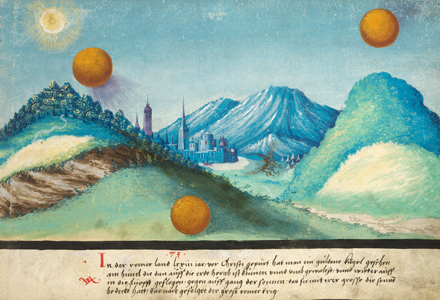 73
In der romer land lxxiii iar vor Christi gepurt hat man ein guldene kugel gesehen
am himel die dan auff die erde herab ist khumen vnnd vmb gewalzt vnnd wider auff
in die lufft geflogen gegen auff gang der sonnen das sie mit irer große die sonne
bedeckt hatt darauff gefolget der groß romer krig